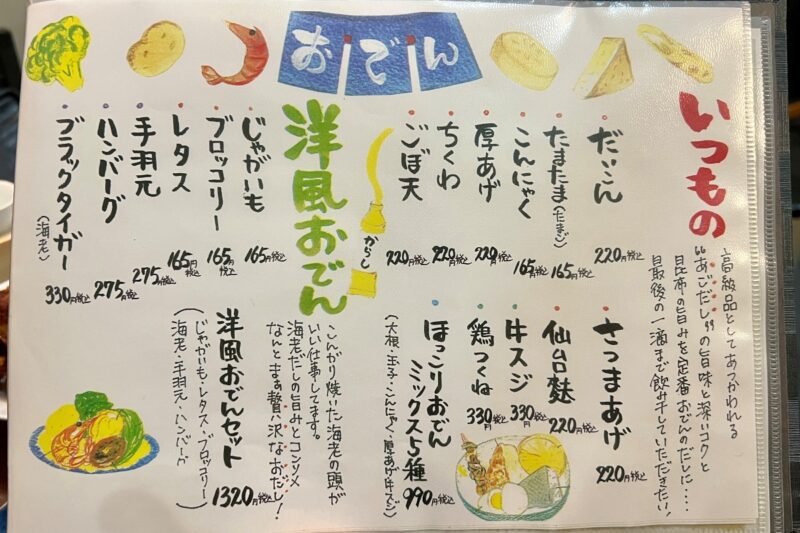 おでん
いつもの
高級品としてあつかわれる
“あごだし”の旨味と深いコクと
昆布の旨みを定番おでんのだしに・・・・
最後の一滴まで飲み干していただきたい!
だいこん 220円税込
たまたま(たまご) 165円税込
こんにゃく 165円税込
厚あげ 220円税込
ちくわ 220円税込
ごぼ天 220円税込
さつまあげ 220円税込
仙台麩 220円税込
牛スジ 330円税込
鶏つくね 330円税込
ほっこりおでん
ミックス5種 990円税込
(大根・玉子・こんにゃく・厚あげ・牛スジ)
からし
洋風おでん
こんがり焼いた海老の頭が
いい仕事してます。
海老だしの旨みとコンソメ
なんとまぁ贅沢なおだし!
じゃがいも 165円税込
ブロッコリー 165円税込
レタス 165円税込
手羽元 275円税込
ハンバーグ 275円税込
ブラックタイガー(海老) 330円税込
洋風おでんセット 1320円税込
(じゃがいも・レタス・ブロッコリー
海老・手羽元・ハンバーグ)